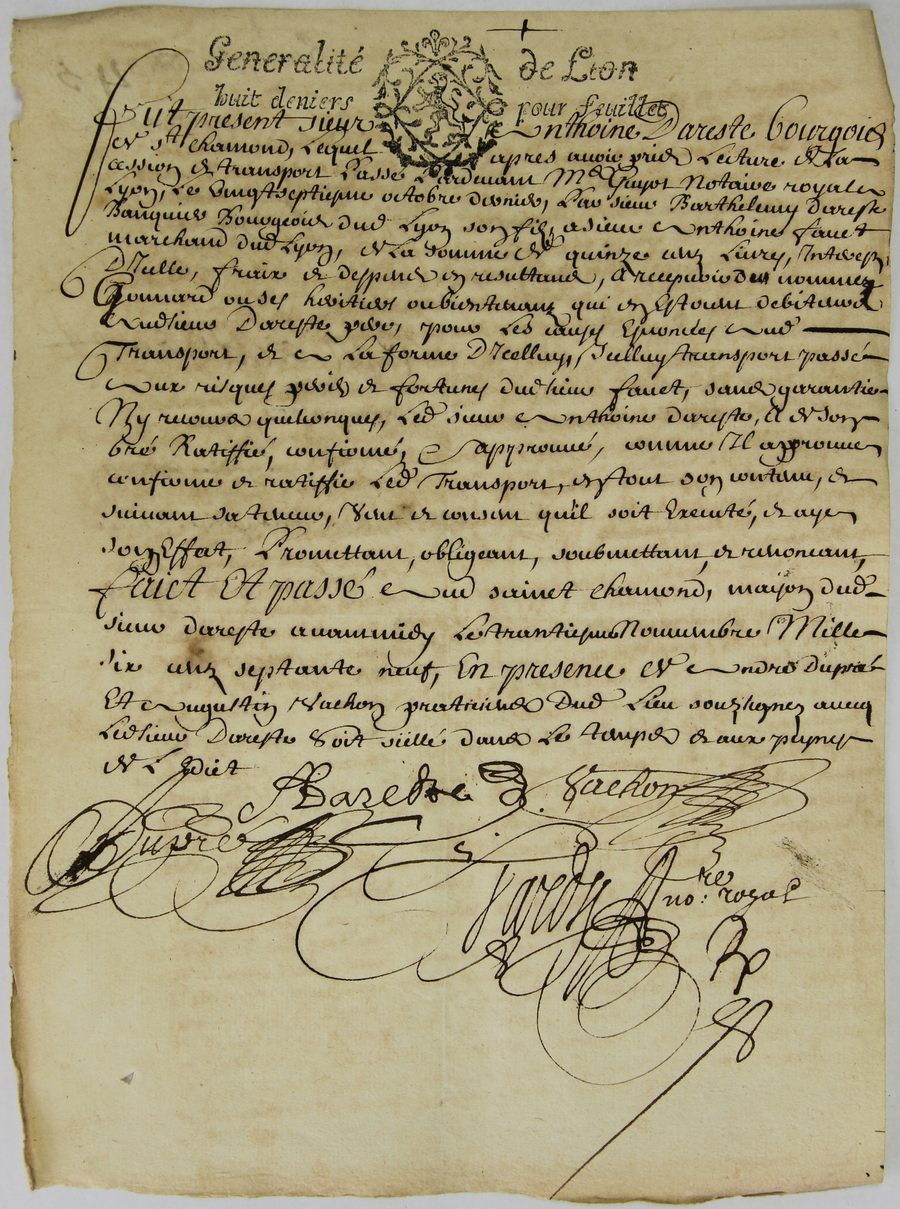 Generalité de Lion
huit deniers pour feuillet
Fut present sieur Anthoine Dareste bourgois
de st chamond, Lequel apres avoir pris Lecture de La
cession et transport Passé Pardevant Me Guyot Notaire royal a
Lyon, Le vingtseptieme octobre dernier, Par sieur Barthelemy Dareste
Banquier Bourgeois dud Lyon son fils, a sieur Anthoine fauet
marchand dud Lyon, de La somme de quinze cens Livres, Interest
D'Icelle, frais et despens en resultans, A recepvoir des nommez
Ponnard ou ses heritiers ou bientenans qui en Estoient debiteurs
Audsieur Dareste pere, pour Les causes Enoncées aud
Transport, et a La forme D'Icelluy, Icelluy transport passé
aux risques perils et fortunes dudsieur fauet, sans garantie
Ny recours quelconques, Led sieur Anthoine dareste, A de son
gré Ratiffié, confirmé, et approuvé, comme Il approuve
confirme et ratiffie Led Transport, et tout son contenu, et
suivant sa teneur, veut et consent qu'il soit Executé, et aye
son Effat, Promettant, obligeant, soubmettant, et renonceant,
faict Et passé aud sainct chamond, maison dud
sieur dareste avant midy Le trantieme Novembre Mille
six cens septante neuf, En presence de Andre Dupré
Et Augustin Vachon praticiens Dud Lieu soubsignez avecq
Ledsieur Dareste soit scellé dans Le temps et aux peynes
de L'Edict
ADareste Vachon
Dupré
nore royal